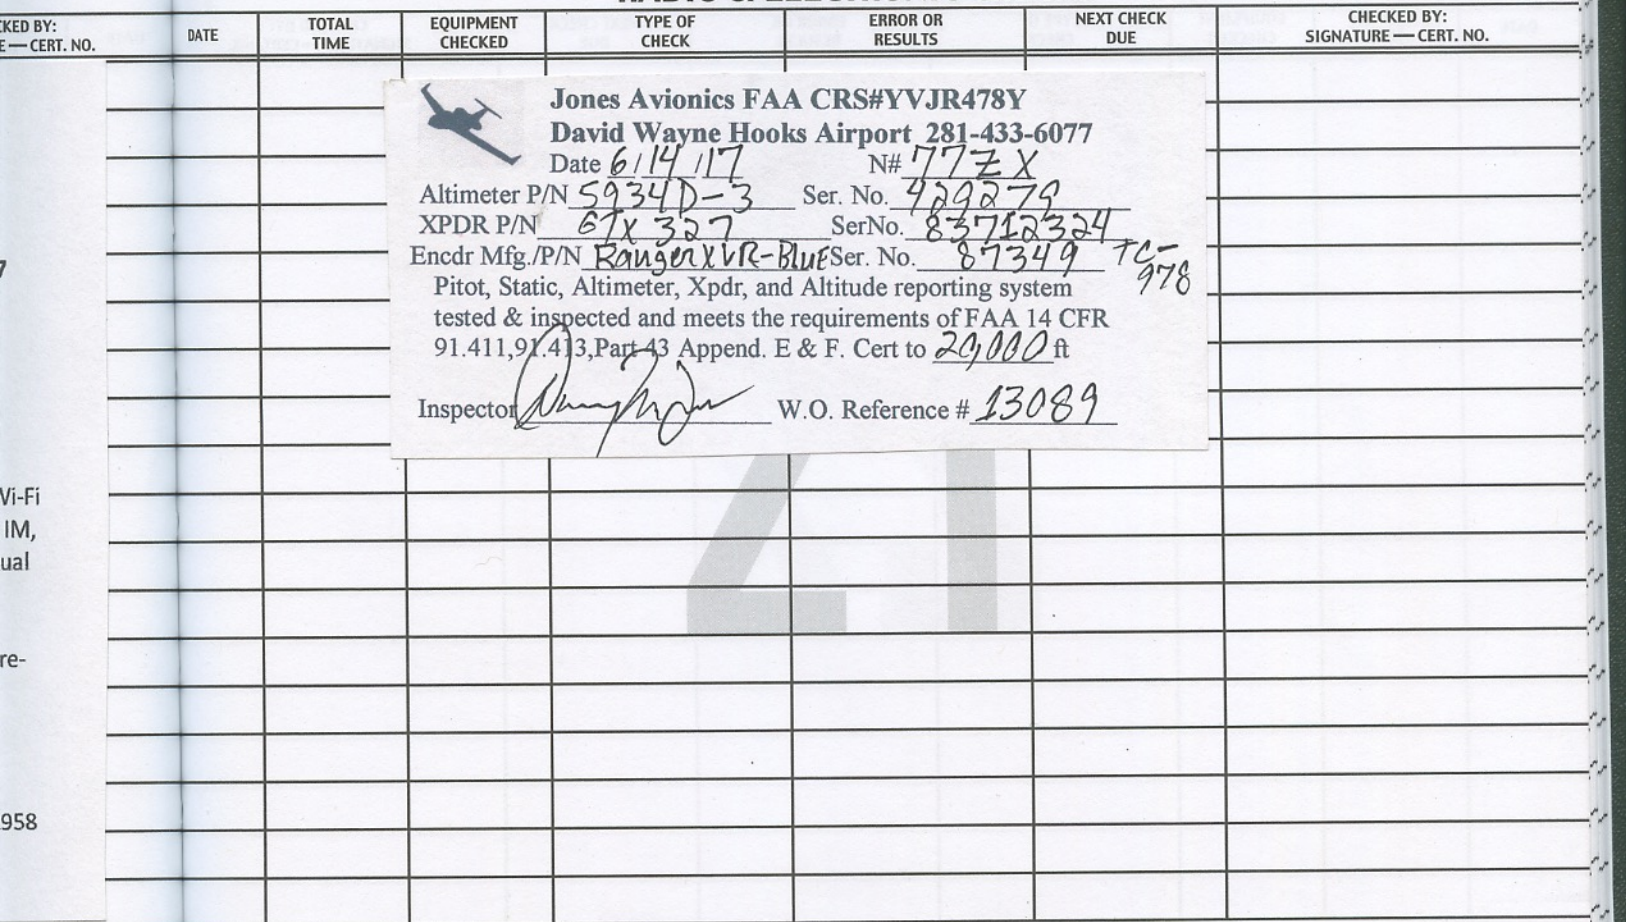 CKED BY:
E — CERT. NO.
DATE
TOTAL
TIME
EQUIPMENT
CHECKED
TYPE OF
CHECK
ERROR OR
RESULTS
NEXT CHECK
DUE
CHECKED BY:
SIGNATURE — CERT. NO.
Jones Avionics FAA CRS#YVJR478Y
David Wayne Hooks Airport 281-433-6077
Date 6/14/17 N# 77ZX
Altimeter P/N 5934D-3 Ser. No. 429279
XPDR P/N GTX 327 SerNo. 83712324
Encdr Mfg./P/N Ranger XVR-Blue Ser. No. 87349 TC-
978
Pitot, Static, Altimeter, Xpdr, and Altitude reporting system
tested & inspected and meets the requirements of FAA 14 CFR
91.411,91.413,Part 43 Append. E & F. Cert to 20,000 ft
Inspector W.O. Reference # 13089
7
Wi-Fi
IM,
ual
re-
958